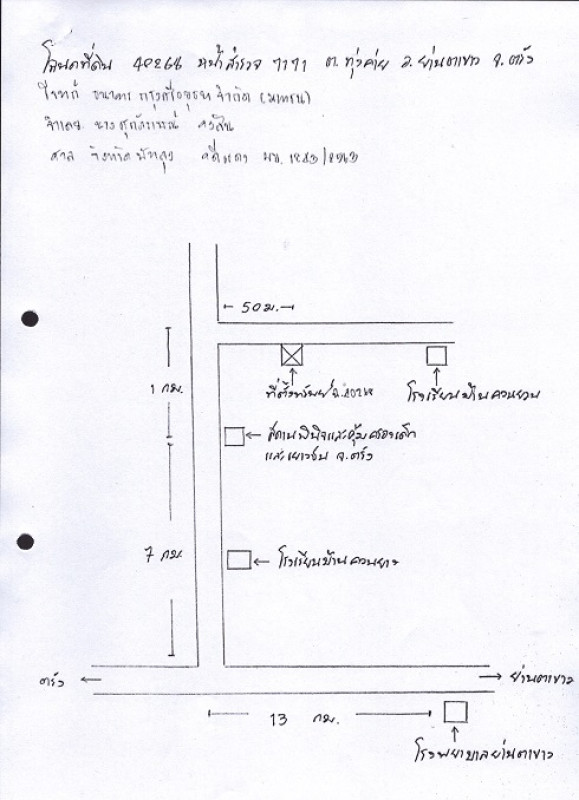 โฉนดที่ดิน 40266 หน้าสำรวจ 7171 ต. ทุ่งค่าย อ. ย่านตาขาว จ. ตรัง
โจทก์ ธนาคาร กรุงศรีอยุธยา จำกัด (มหาชน)
จำเลย นาง
ศาล จังหวัด พัทลุง คดีแดง
50 ม.
1 กม.
ที่ตั้งทรัพย์
โรงเรียนบ้านควนยวน
สถานพินิจและคุ้มครองเด็ก
และเยาวชน จ. ตรัง
7 กม.
โรงเรียนบ้านควนยาง
ตรัง
ย่านตาขาว
13 กม.
โรงพยาบาลย่านตาขาว